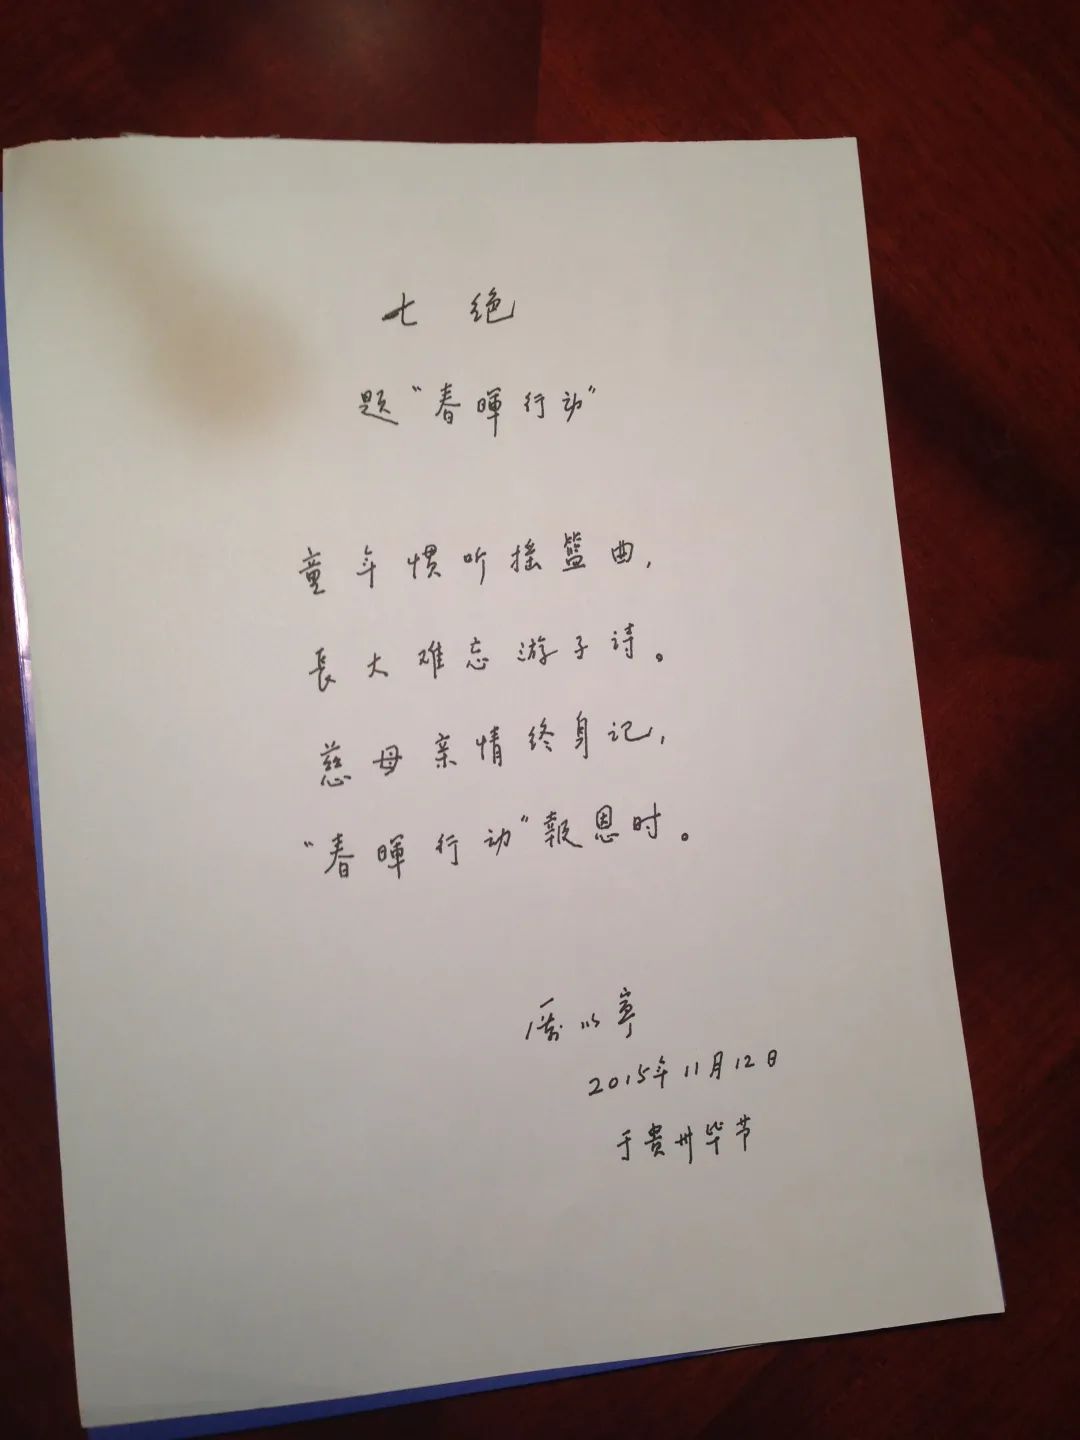 七绝
题“春暉行动”
童年惯听摇篮曲，
長大难忘游子诗。
慈母亲情终身记，
“春暉行动”報恩时。
厉以宁
2015年11月12日
于贵州毕节